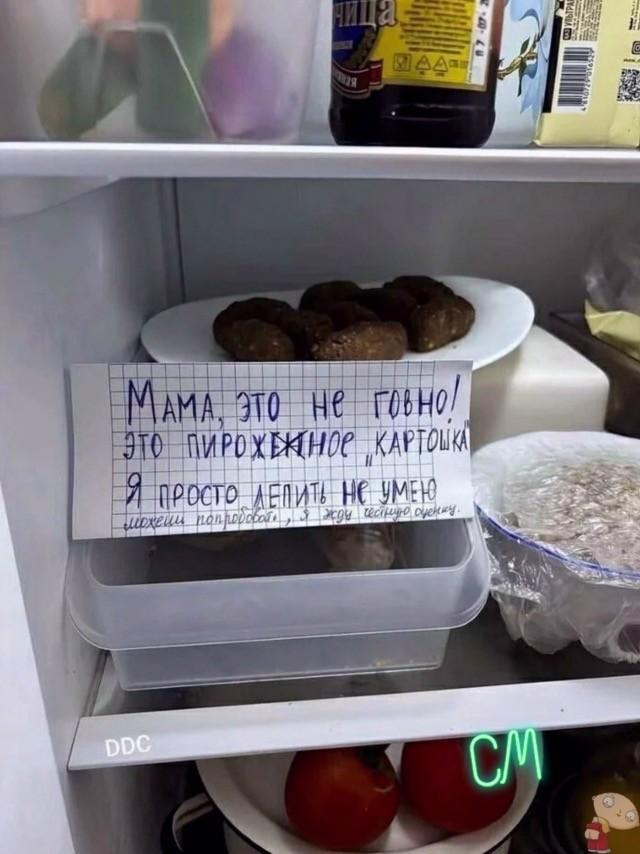 чица
МАМА, ЭТО НЕ ГОВНО!
ЭТО ПИРОЖЕНОЕ „КАРТОШКА"
Я ПРОСТО ЛЕПИТЬ НЕ УМЕЮ
можеш попробовать, я жду честную оценку.
DDC
CM